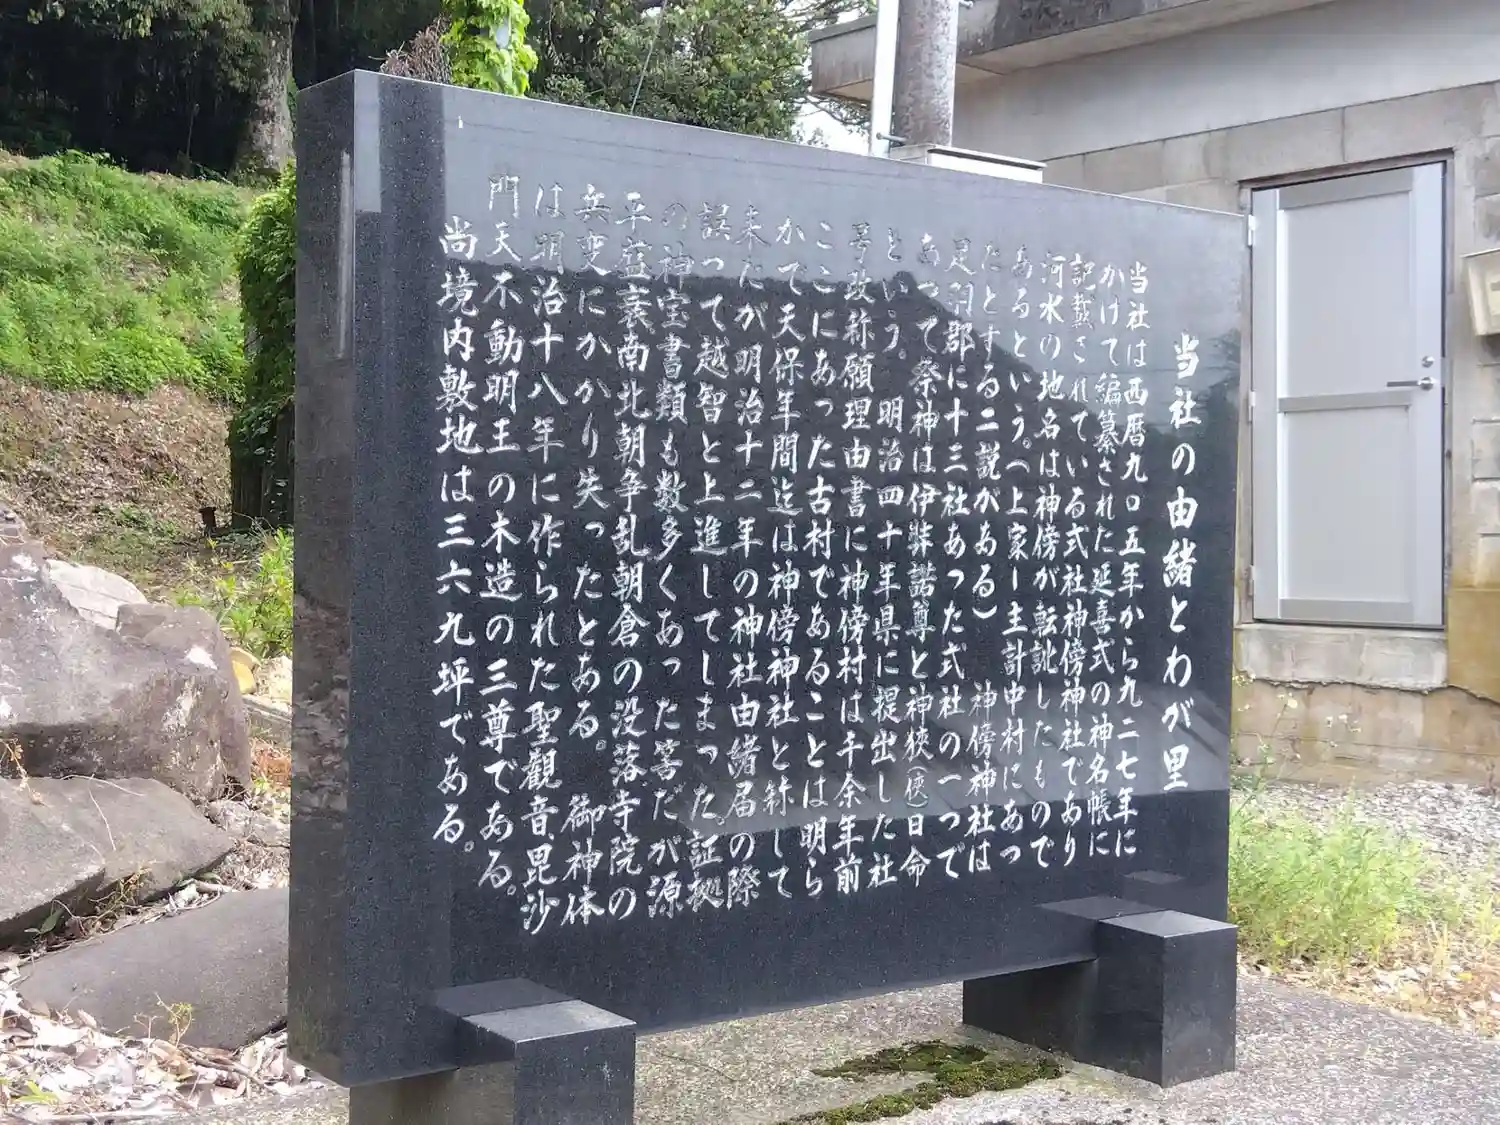 当社の由緒とわが里
当社は西暦九〇五年から九二七年に
かけて編纂された延喜式の神名帳に
記載されている式社神傍神社であり
河水の地名は神傍が転訛したもので
あるという。(上家ー主計中村にあっ
たとする二説がある) 神傍神社は
足羽郡に十三社あった式社の一つで
あって祭神は伊弉諾尊と神狹(侠)日命
という。明治四十年県に提出した社
号改称願理由書に神傍村は千余年前
ここにあった古村であることは明ら
かで天保年間迄は神傍神社と称して
来たが明治十二年の神社由緒届の際
誤って越智と上進してしまった、証拠
の神宝書類も数多くあった等だが源
平盛衰南北朝争乱朝倉の没落寺院の
兵変にかかり失ったとある。 御神体
は明治十八年に作られた聖観音、毘沙
門天不動明王の木造の三尊である。
尚境内敷地は三六九坪である。